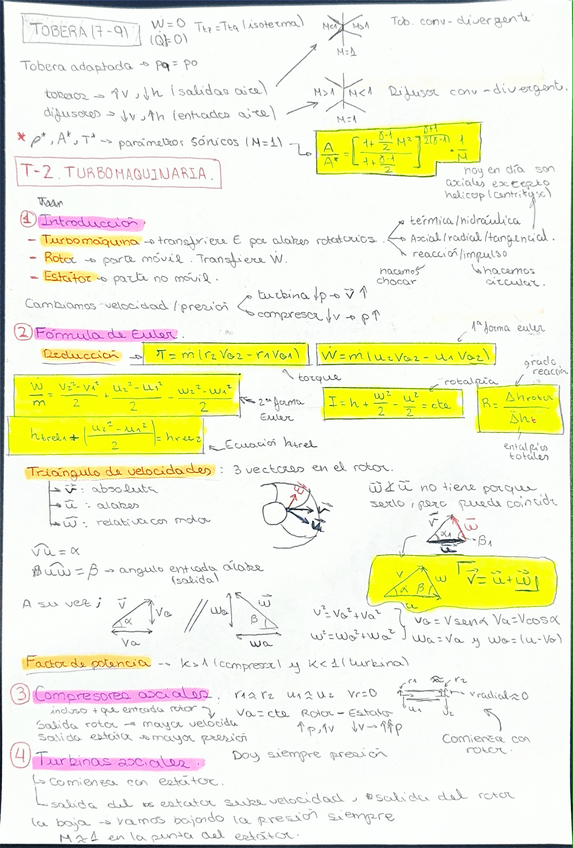 TOBERA (7-9) W=0 (Q=0) Tt7 = Tt9 (isoterma) M<1 M>1 M=1 Tob. conv-divergente
Tobera adaptada → p9 = p0
toberas → ↑v, ↓h (salidas aire)
difusores → ↓v, ↑h (entradas aire) M>1 M<1 M=1 Difusor conv-divergente.
* p*, A*, T* → parámetros sónicos (M=1) → A/A* = [1+ (γ-1)/2 M² / 1+ (γ-1)/2]^(γ+1)/2(γ-1) · 1/M
T-2. TURBOMAQUINARIA.
hoy en día son axiales excepto helicop (centrifugx)
① Introducción.
- Turbomáquina → transfiere E por alabes rotatorios.
térmica/hidráulica
Axial/radial/tangencial.
reacción/impulso
- Rotor → parte móvil. Transfiere W.
- Estátor → parte no móvil.
hacemos chocar
hacemos circular.
Cambiamos velocidad/presión
turbina ↓p → v ↑
compresor ↓v → p↑
② Fórmula de Euler.
1ª forma euler
Deducción → τ = m(r2 Vθ2 - r1 Vθ1) W = m(u2 Vθ2 - u1 Vθ2)
torque
W/m = (v2² - v1²)/2 + (u2² - u1²)/2 - (w2² - w1²)/2
2ª forma Euler
rotalpia
I = h + w²/2 - u²/2 = cte
grado reacción
R = Δh rotor / Δht
entalpías totales
htrel1 + (u2² - u1²/2) = htrel2
Ecuación htrel
Triángulo de velocidades: 3 vectores en el rotor.
v: absoluta
u: alabes
w: relativa con motor
w ⊥ u no tiene porque serlo, pero puede coincidir
v w α1 β1 u
vu = α
uw = β → angulo entrada álabe (salida)
v α β u v = u + w
A su vez; v α vθ va // wθ w β wa
v² = vθ² + va²
w² = wθ² + wa²
vθ = v senα va = v cosα
wa = va y wθ = (u - vθ)
Factor de potencia → k>1 (compresor) y k<1 (turbina)
③ Compresores axiales. r1 ≈ r2 u1 ≈ u2 vr=0
incluso + que entrada rotor
va = cte Rotor - Estátor
r1 r2 u1 v radial ≈ 0
Salida rotor → mayor velocidad
Salida estátor → mayor presión
↑p, ↑v ↓v → ↑↑p
Comienza con rotor.
④ Turbinas axiales. Doy siempre presión
Comienza con estátor.
salida del estator sube velocidad, salida del rotor
la baja → vamos bajando la presión siempre
M≈1 en la punta del estátor.